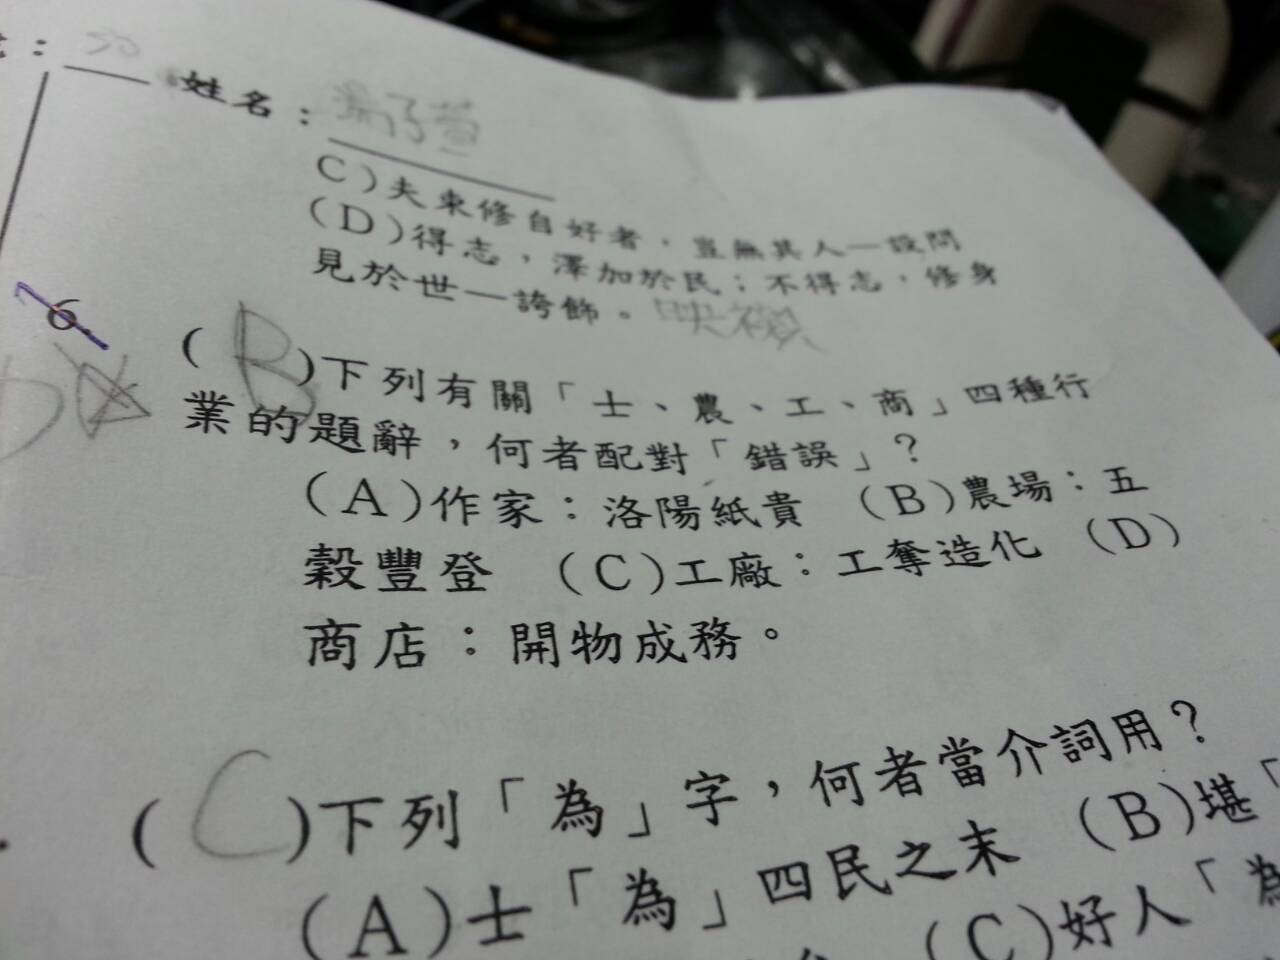 姓名：
C)夫束修自好者，豈無其人—設問
(D)得志，澤加於民；不得志，修身
見於世—誇飾。映襯
6.
(B)下列有關「士、農、工、商」四種行
業的題辭，何者配對「錯誤」？
(A)作家：洛陽紙貴 (B)農場：五
穀豐登 (C)工廠：工奪造化 (D)
商店：開物成務。
(C)下列「為」字，何者當介詞用？
(A)士「為」四民之末 (B)堪「
(C)好人「為